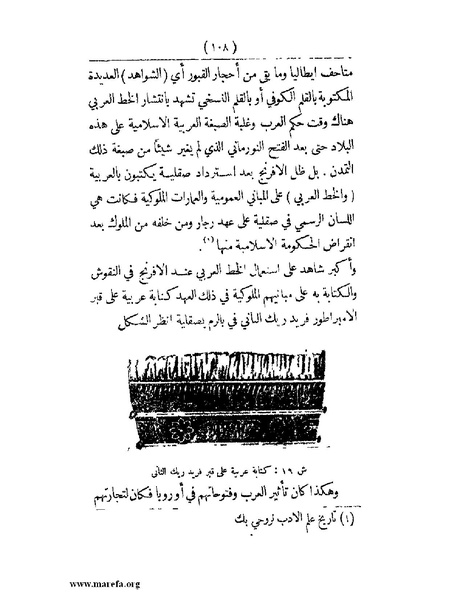 ( ١٠٨ )
متاحف ايطاليا وما بقى من أحجار القبور أي (الشواهد) العديدة
المكتوبة بالقلم الكوفي أو بالقلم النسخي تشهد بانتشار الخط العربي
هناك وقت حكم العرب وغلبة الصبغة العربية الاسلامية على هذه
البلاد حتى بعد الفتح النورماني الذي لم يغير شيئاً من صبغة ذلك
التمدن . بل ظل الافرنج بعد استرداد صقلية يكتبون بالعربية
( والخط العربي ) على المباني العمومية والعمارات الملوكية فكانت هي
اللسان الرسمي في صقلية على عهد رجار ومن خلفه من الملوك بعد
انقراض الحكومة الاسلامية منها (١).
وأكبر شاهد على استعمال الخط العربي عند الافرنج في النقوش
والكتابة به على مبانيهم الملوكية في ذلك العهد كتابة عربية على قبر
الامبراطور فريد ريك الثاني في بالرم بصقلية انظر الشكل
ش ١٦ : كتابة عربية على قبر فريد ريك الثانى
وهكذا كان تأثير العرب وفتوحاتهم في أوروبا فكان لتجارتهم
(١) تاريخ علم الادب لروحي بك
www.marefa.org